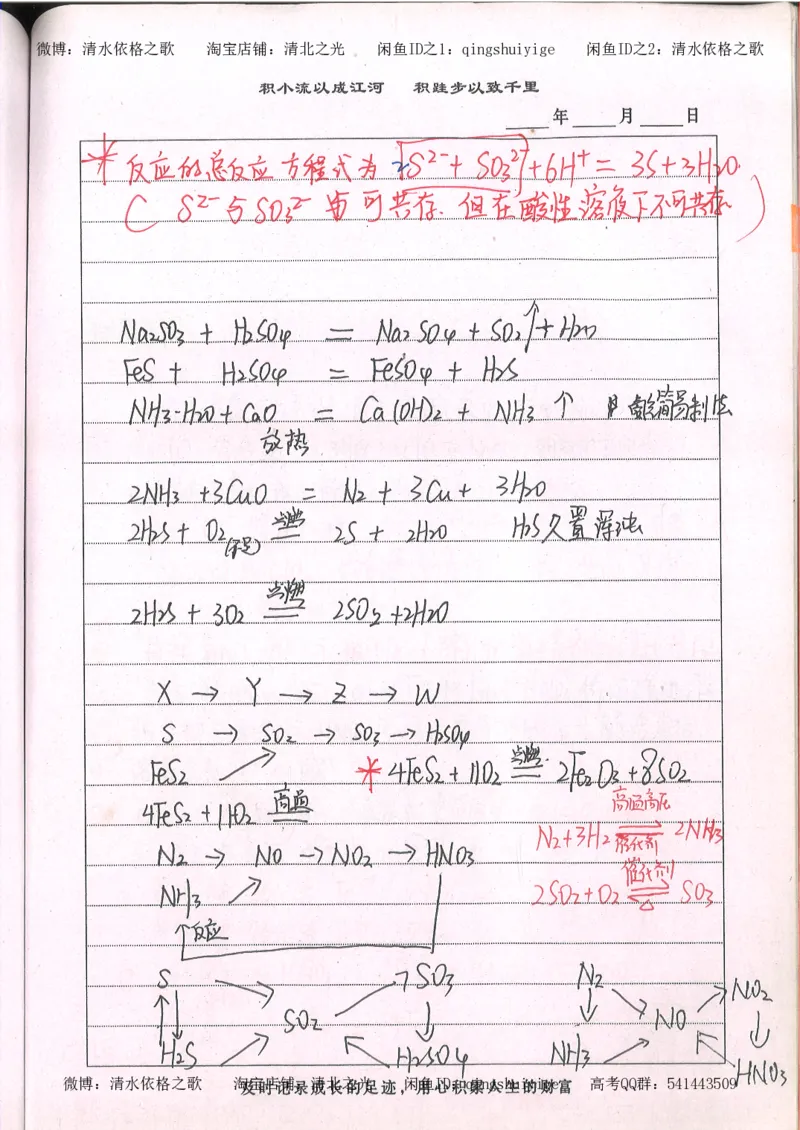 微博：清水依格之歌 淘宝店铺：清北之光 闲鱼ID之1：qingshuiyige 闲鱼ID之2：清水依格之歌
积小流以成江河 积跬步以致千里
年 月 日
* 反应的总反应方程式为 2S²⁻ + SO₃²⁻ + 6H⁺ = 3S + 3H₂O
( S²⁻与SO₃²⁻ 可共存. 但在酸性溶液下不可共存 )
Na₂SO₃ + H₂SO₄ = Na₂SO₄ + SO₂↑ + H₂O
FeS + H₂SO₄ = FeSO₄ + H₂S
NH₃·H₂O + CaO = Ca(OH)₂ + NH₃ ↑ 简易制法
放热
2NH₃ + 3CuO = N₂ + 3Cu + 3H₂O
2H₂S + O₂(不足) 点燃 = 2S + 2H₂O H₂S久置浑浊
2H₂S + 3O₂ 点燃 = 2SO₂ + 2H₂O
X → Y → Z → W
S → SO₂ → SO₃ → H₂SO₄
FeS₂ ↗ * 4FeS₂ + 11O₂ 点燃 = 2Fe₂O₃ + 8SO₂
4FeS₂ + 11O₂ 高温 =
N₂ + 3H₂ 高温高压 ⇌ 催化剂 2NH₃
N₂ → NO → NO₂ → HNO₃
2SO₂ + O₂ 催化剂 ⇌ △ SO₃
NH₃ ↗
↑反应
S SO₃ N₂ NO₂
SO₂ NO
H₂S H₂SO₄ NH₃ HNO₃
微博：清水依格之歌 淘宝店铺：清北之光 闲鱼ID：qingshuiyige 高考QQ群：541443509
及时记录成长的足迹，用心积累人生的财富